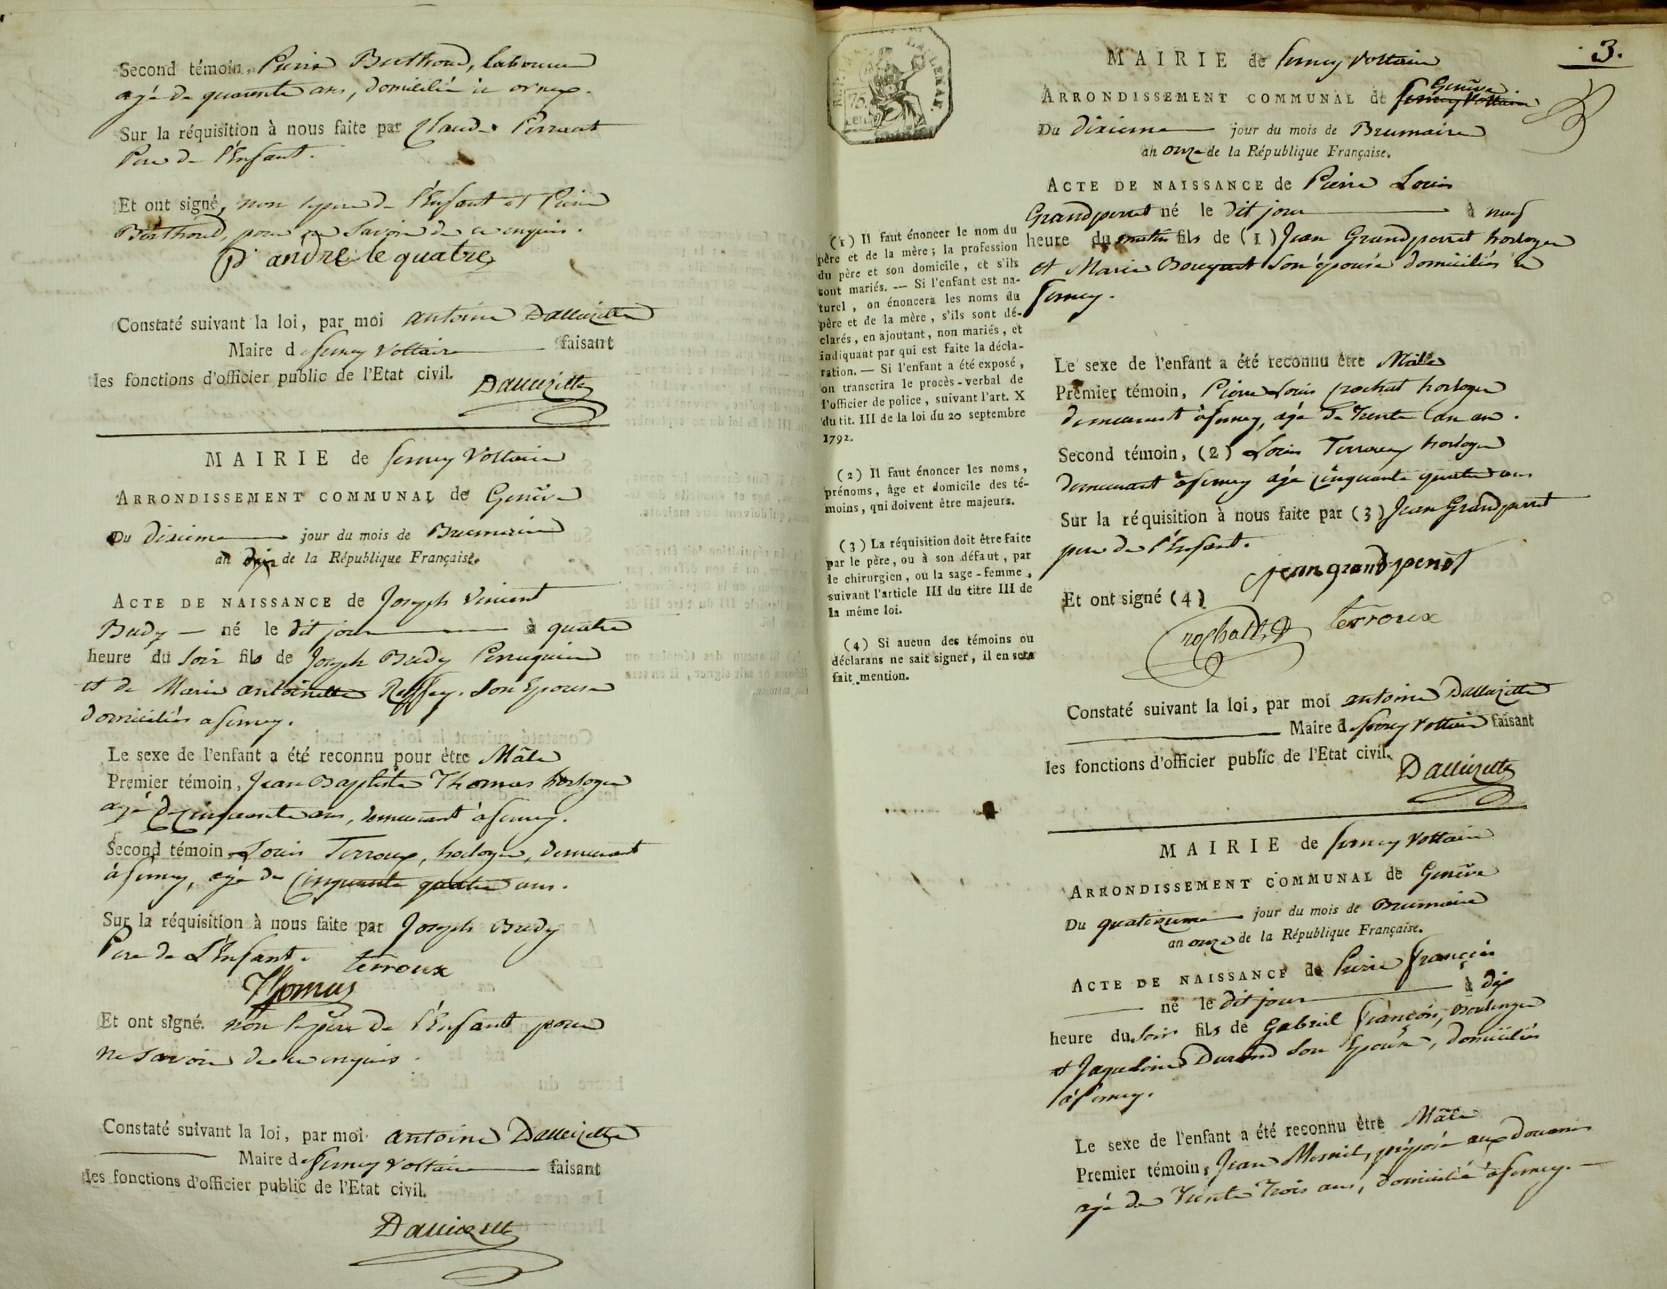 Second témoin, Pierre Berthoud, laboureur
agé de quarente ans, domicilié à ornex.
Sur la réquisition à nous faite par Claude Perreaut
Pere de l'Enfant.
Et ont signé, non le pere de l'Enfant et Pierre
Berthoud, pour ne savoir de ce enquis.
P. andre le quatre
Constaté suivant la loi, par moi antoine Dallizette
Maire d fernex Voltaire faisant
les fonctions d'officier public de l'Etat civil.
Dallizette
MAIRIE de fernex Voltaire
ARRONDISSEMENT COMMUNAL de Genêve
Du dixieme jour du mois de Brumaire
an de la République Française.
ACTE DE NAISSANCE de Joseph Vincent
Budy né le dit jour à quatre
heure du soir fils de Joseph Budy Perruquier
et de Marie antoinette Reffay. Son Epouse
domiciliés a ferney.
Le sexe de l'enfant a été reconnu pour être Mâle
Premier témoin, Jean Baptiste Thomas horloger
agé de cinquante ans, demeurant à ferney.
Second témoin Louis Terroux, horloger, demeurant
à ferney, agé de cinquante quatre ans.
Sur la réquisition à nous faite par Joseph Budy
Pere de L'Enfant. terroux
Thomas
Et ont signé. non le pere de l'Enfant pour
ne savoir de ce enquis.
Constaté suivant la loi, par moi antoine Dallizette
Maire d fernex Voltaire faisant
les fonctions d'officier public de l'Etat civil.
Dallizette
3.
MAIRIE de ferney Voltaire
Genêve
ARRONDISSEMENT COMMUNAL de ferney Voltaire
Du dixieme jour du mois de Brumaire
an onze de la République Française.
ACTE DE NAISSANCE de Pierre Louis
Grandperret né le dit jour à neuf
heure du matin fils de (1) Jean Grandperret horloger
et Marie Bouquet Son épouse domiciliés à
ferney.
Le sexe de l'enfant a été reconnu être Mâle
Premier témoin, Pierre Louis rochat horloger
demeurant à ferney, agé de Trente un an.
Second témoin, (2) Louis Terroux horloger
demeurant à ferney agé cinquante quatre ans
Sur la réquisition à nous faite par (3) Jean Grandperret
pere de l'Enfant.
jean grandperret
Et ont signé (4)
rochatt terroux
Constaté suivant la loi, par moi antoine Dallizette
Maire d ferney Voltaire faisant
les fonctions d'officier public de l'Etat civil.
Dallizette
MAIRIE de ferney Voltaire
ARRONDISSEMENT COMMUNAL de Genêve
Du quatorzieme jour du mois de Brumaire
an onze de la République Française.
ACTE DE NAISSANCE de Pierre françois
né le dit jour à dix
heure du soir fils de Gabriel françois, boulanger
et Jaqueline Durand Son Epouse, domiciliés
à ferney.
Le sexe de l'enfant a été reconnu être Mâle
Premier témoin, Jean Mesnil, préposé aux douanes
agé de Trente Trois ans, domicilié à ferney.
(1) Il faut énoncer le nom du
père et de la mère; la profession
du père et son domicile, et s'ils
sont mariés. — Si l'enfant est na-
turel, on énoncera les noms du
père et de la mère, s'ils sont dé-
clarés, en ajoutant, non mariés, et
indiquant par qui est faite la décla-
ration. — Si l'enfant a été exposé,
on transcrira le procès-verbal de
l'officier de police, suivant l'art. X
du tit. III de la loi du 20 septembre
1792.
(2) Il faut énoncer les noms,
prénoms, âge et domicile des té-
moins, qui doivent être majeurs.
(3) La réquisition doit être faite
par le père, ou à son défaut, par
le chirurgien, ou la sage-femme,
suivant l'article III du titre III de
la même loi.
(4) Si aucun des témoins ou
déclarans ne sait signer, il en sera
fait mention.